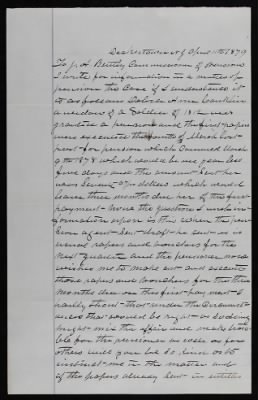 April 11th 1879
To J. A. Bentley Commissioner of Pensions
I write for information in a matter of
pension the Case of I understand it
is as follows Ann Conklin
a widow of a Soldier of 1812 was
granted a pension and the first papers
were executed the month of March last
past for pension which Commenced March
9th 1878 which would be one year less
five days and the amount sent her
was Seventy dollars which would
leave three months due her of the first
payment have the question I wish in
formation upon is this when the pen
sion agent Sent draft he sent as is
usual papers and vouchers for the
next quarter and the pensioner now
wishes me to make out and execute
those papers and vouchers for the three
months due on the first payment I
hardly think that under the Circumst
ances that would be right as so doing
might mix the affair and make trou
ble for the pensioner as well as for
others will you be so kind as to
instruct me in the matter and
if the papers already Sent